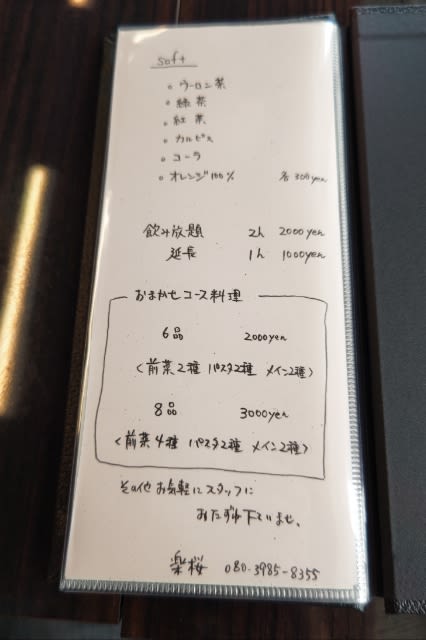 Soft
○ ウーロン茶
○ 緑茶
○ 紅茶
○ カルピス
○ コーラ
○ オレンジ100% 各300yen
飲み放題 2h 2000yen
延長 1h 1000yen
おまかせコース料理
6品 2000yen
〈前菜2種 パスタ2種 メイン2種〉
8品 3000yen
〈前菜4種 パスタ2種 メイン2種〉
その他お気軽にスタッフに
おたずね下さいませ。
楽桜 080-3985-8355